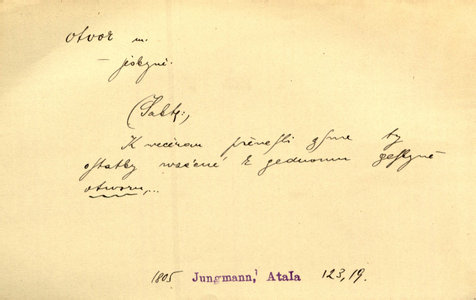 otvor m.
– jeskyně.
K večeru přenesli gsme ty
ostatky wzácné k gednomu geskyně
otworu,...
1805 Jungmann, Atala 123,19.